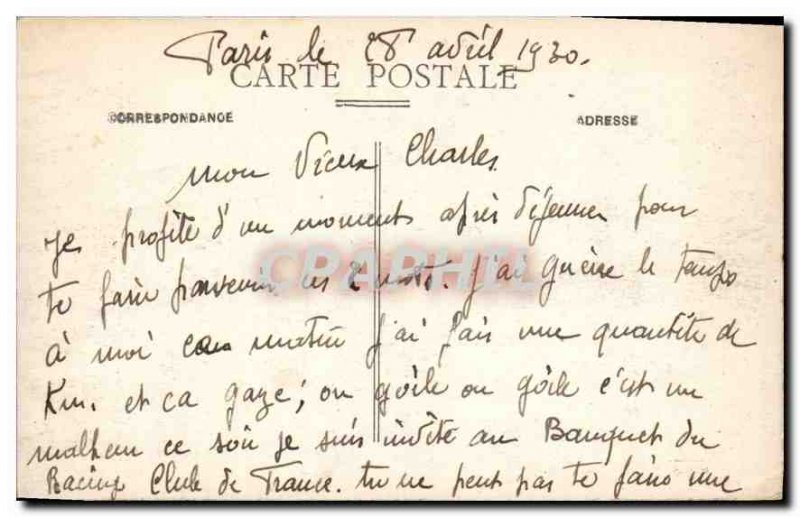 Paris le 28 avril 1930.
CARTE POSTALE
CORRESPONDANCE
ADRESSE
mon Vieux Charles
Je profite d'un moments après déjeuner pour
te faire parvenir ces 2 mots. j'ai guère le temps
à moi ce matin j'ai fais une quantité de
Km. et ca gaze; on on c'est un
malheur ce soir je suis invité au Banquet du
Racing Club de France. tu ne peut pas te faire une
CPAPHIL